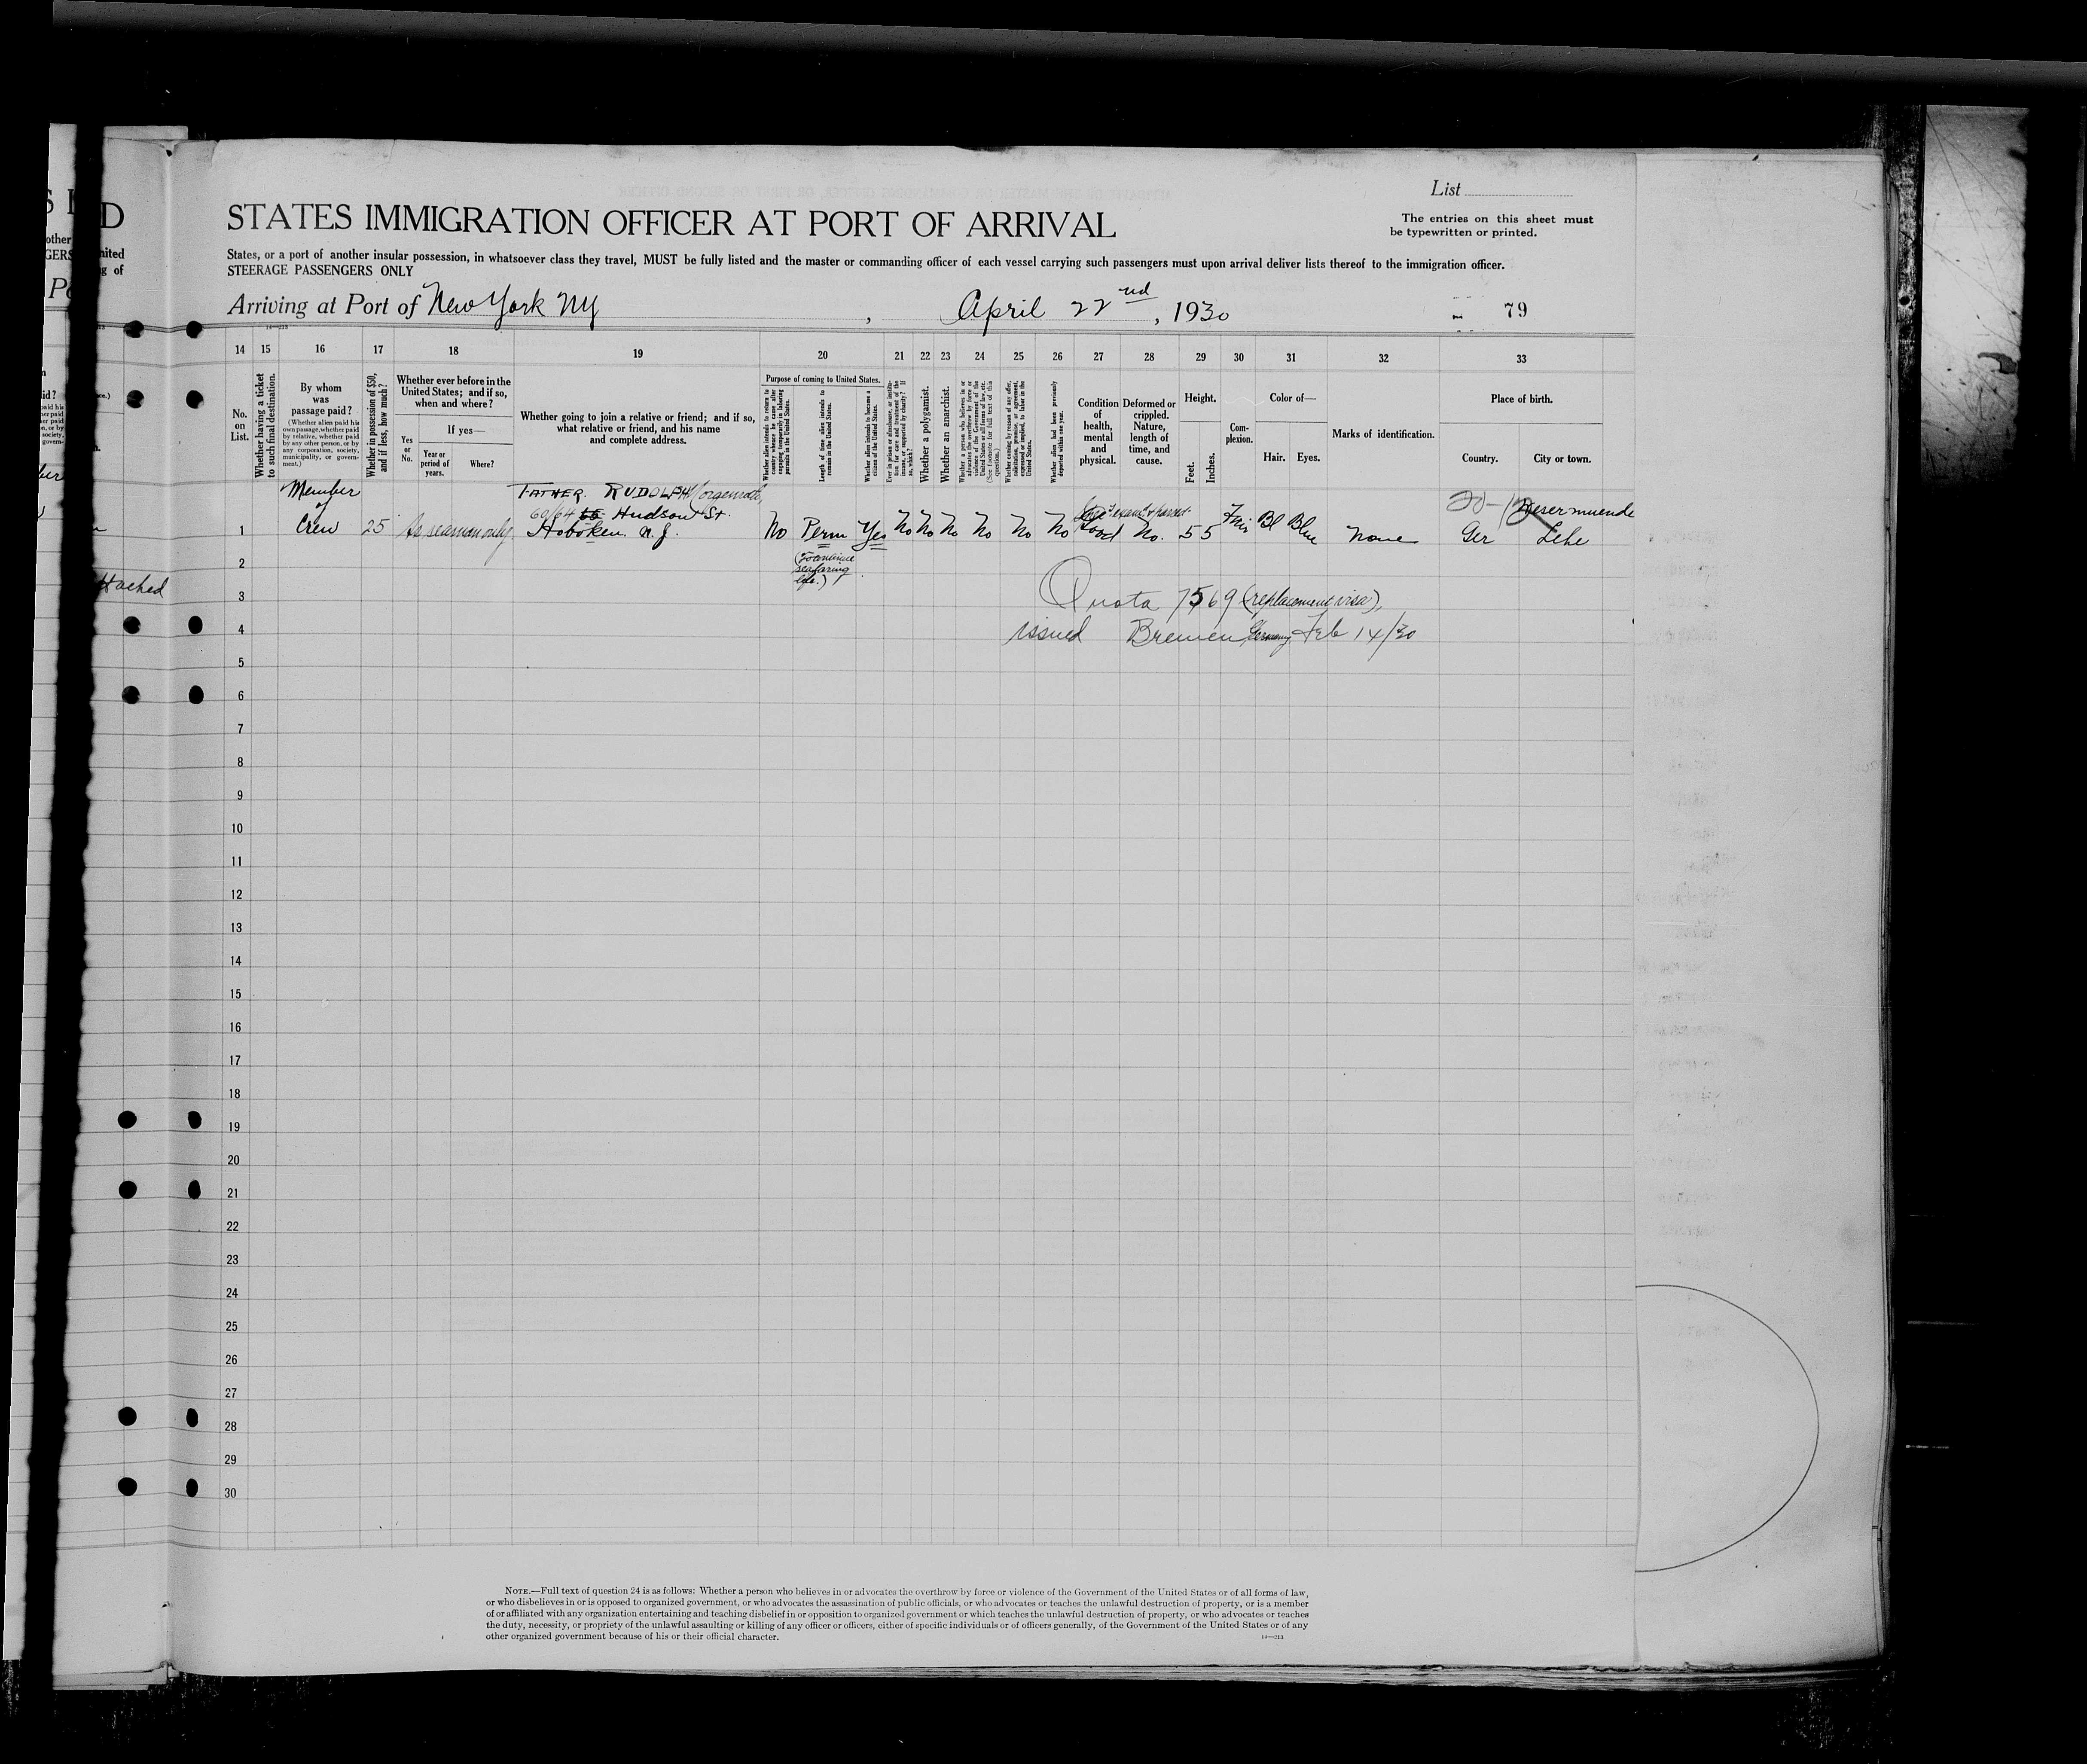 List
STATES IMMIGRATION OFFICER AT PORT OF ARRIVAL
The entries on this sheet must
be typewritten or printed.
States, or a port of another insular possession, in whatsoever class they travel, MUST be fully listed and the master or commanding officer of each vessel carrying such passengers must upon arrival deliver lists thereof to the immigration officer.
STEERAGE PASSENGERS ONLY
Arriving at Port of New York NY, April 22nd, 1930
79
14 15 16 17 18 19 20 21 22 23 24 25 26 27 28 29 30 31 32 33
No. on List.
Whether having a ticket to such final destination.
By whom was passage paid?
(Whether alien paid his own passage, whether paid by relative, whether paid by any other person, or by any corporation, society, municipality, or government.)
Whether in possession of $50, and if less, how much?
Whether ever before in the United States; and if so, when and where?
Yes or No.
If yes—
Year or period of years.
Where?
Whether going to join a relative or friend; and if so, what relative or friend, and his name and complete address.
Purpose of coming to United States.
Whether alien intends to return to country whence he came after engaging temporarily in laboring pursuits in the United States.
Length of time alien intends to remain in the United States.
Whether alien intends to become a citizen of the United States.
Ever in prison or almshouse, or institution for care and treatment of the insane, or supported by charity? If so, which?
Whether a polygamist.
Whether an anarchist.
Whether a person who believes in or advocates the overthrow by force or violence of the Government of the United States or all forms of law, etc. (See footnote for full text of this question.)
Whether coming by reason of any offer, solicitation, promise, or agreement, expressed or implied, to labor in the United States.
Whether alien had been previously deported within one year.
Condition of health, mental and physical.
Deformed or crippled. Nature, length of time, and cause.
Height.
Feet.
Inches.
Complexion.
Color of—
Hair.
Eyes.
Marks of identification.
Place of birth.
Country.
City or town.
Member of Crew
FATHER. RUDOLPH
60/64 Hudson St.
Hoboken. N.J.
1 25 As seaman only No Perm Yes No No No No No No Good No. 5 5 Fair Bl Blue None Ger Lehe
Wesermuende
seafaring
life.)
Quota 7569 (replacement visa),
issued Bremen Germany Feb 14/30
ttached
2
3
4
5
6
7
8
9
10
11
12
13
14
15
16
17
18
19
20
21
22
23
24
25
26
27
28
29
30
NOTE.—Full text of question 24 is as follows: Whether a person who believes in or advocates the overthrow by force or violence of the Government of the United States or of all forms of law,
or who disbelieves in or is opposed to organized government, or who advocates the assassination of public officials, or who advocates or teaches the unlawful destruction of property, or is a member
of or affiliated with any organization entertaining and teaching disbelief in or opposition to organized government or which teaches the unlawful destruction of property, or who advocates or teaches
the duty, necessity, or propriety of the unlawful assaulting or killing of any officer or officers, either of specific individuals or of officers generally, of the Government of the United States or of any
other organized government because of his or their official character.
14—213